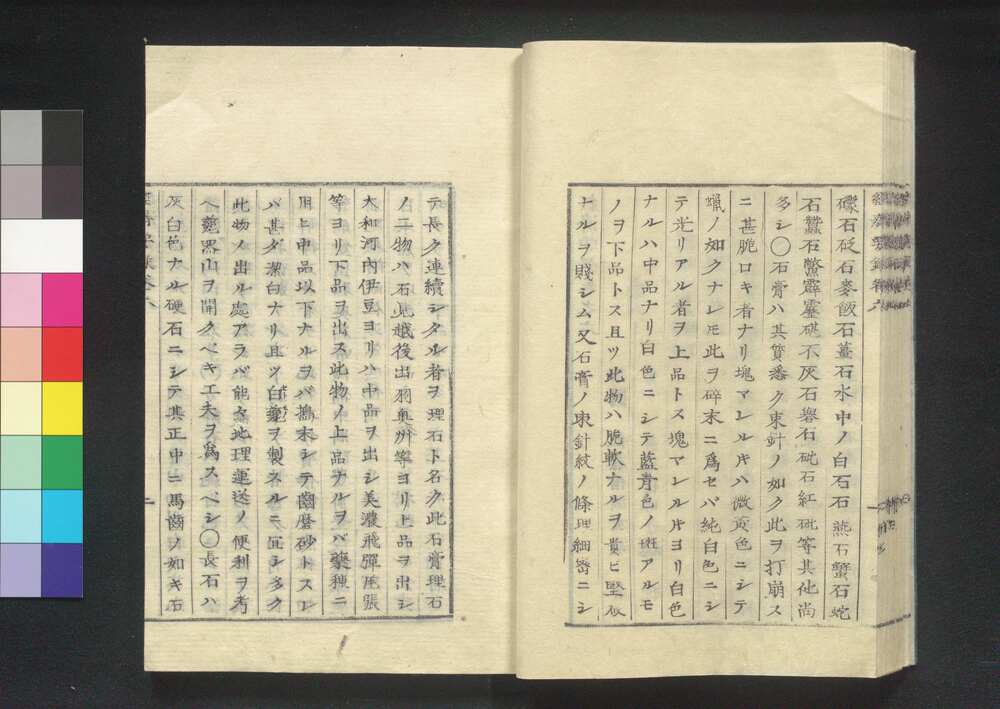 礞石砭石麥飯石薑石水中ノ白石石燕石蟹石蛇
石蠶石鱉霹靂碪不灰石礜石砒石紅砒等其他尚
多シ〇石膏ハ其質悉ク束針ノ如ク此ヲ打崩ス
ニ甚脆ロキ者ナリ塊マレル片ハ微黄色ニシテ
蠟ノ如クナレ𪜈此ヲ碎末ニ爲セバ純白色ニシ
テ光リアル者ヲ上品トス塊マレル片ヨリ白色
ナルハ中品ナリ白色ニシテ藍青色ノ斑アルモ
ノヲ下品トス且ツ此物ハ脆軟ナルヲ貴ビ堅
ナルヲ賤シム又石膏ノ束針紋ノ條理細密ニシ
テ長ク連續シタル者ヲ理石ト名ク此石膏理石
ノ二物ハ石見越後出羽奥州等ヨリ上品ヲ出シ
大和河内伊豆ヨリハ中品ヲ出シ美濃飛彈尾張
等ヨリ下品ヲ出ス此物ノ上品ナルヲバ藥種ニ
用ヒ中品以下ナルヲバ搗末シテ齒磨砂トスレ
バ甚ダ潔白ナリ且ツ白甆ヲ製スルニ宜シ多ク
此物ノ出ル處アラバ能ク地理運送ノ便利ヲ考
ヘ甆器山ヲ開クベキ工夫ヲ爲スベシ〇長石ハ
灰白色ナル硬石ニシテ其正中ニ馬齒ノ如キ石